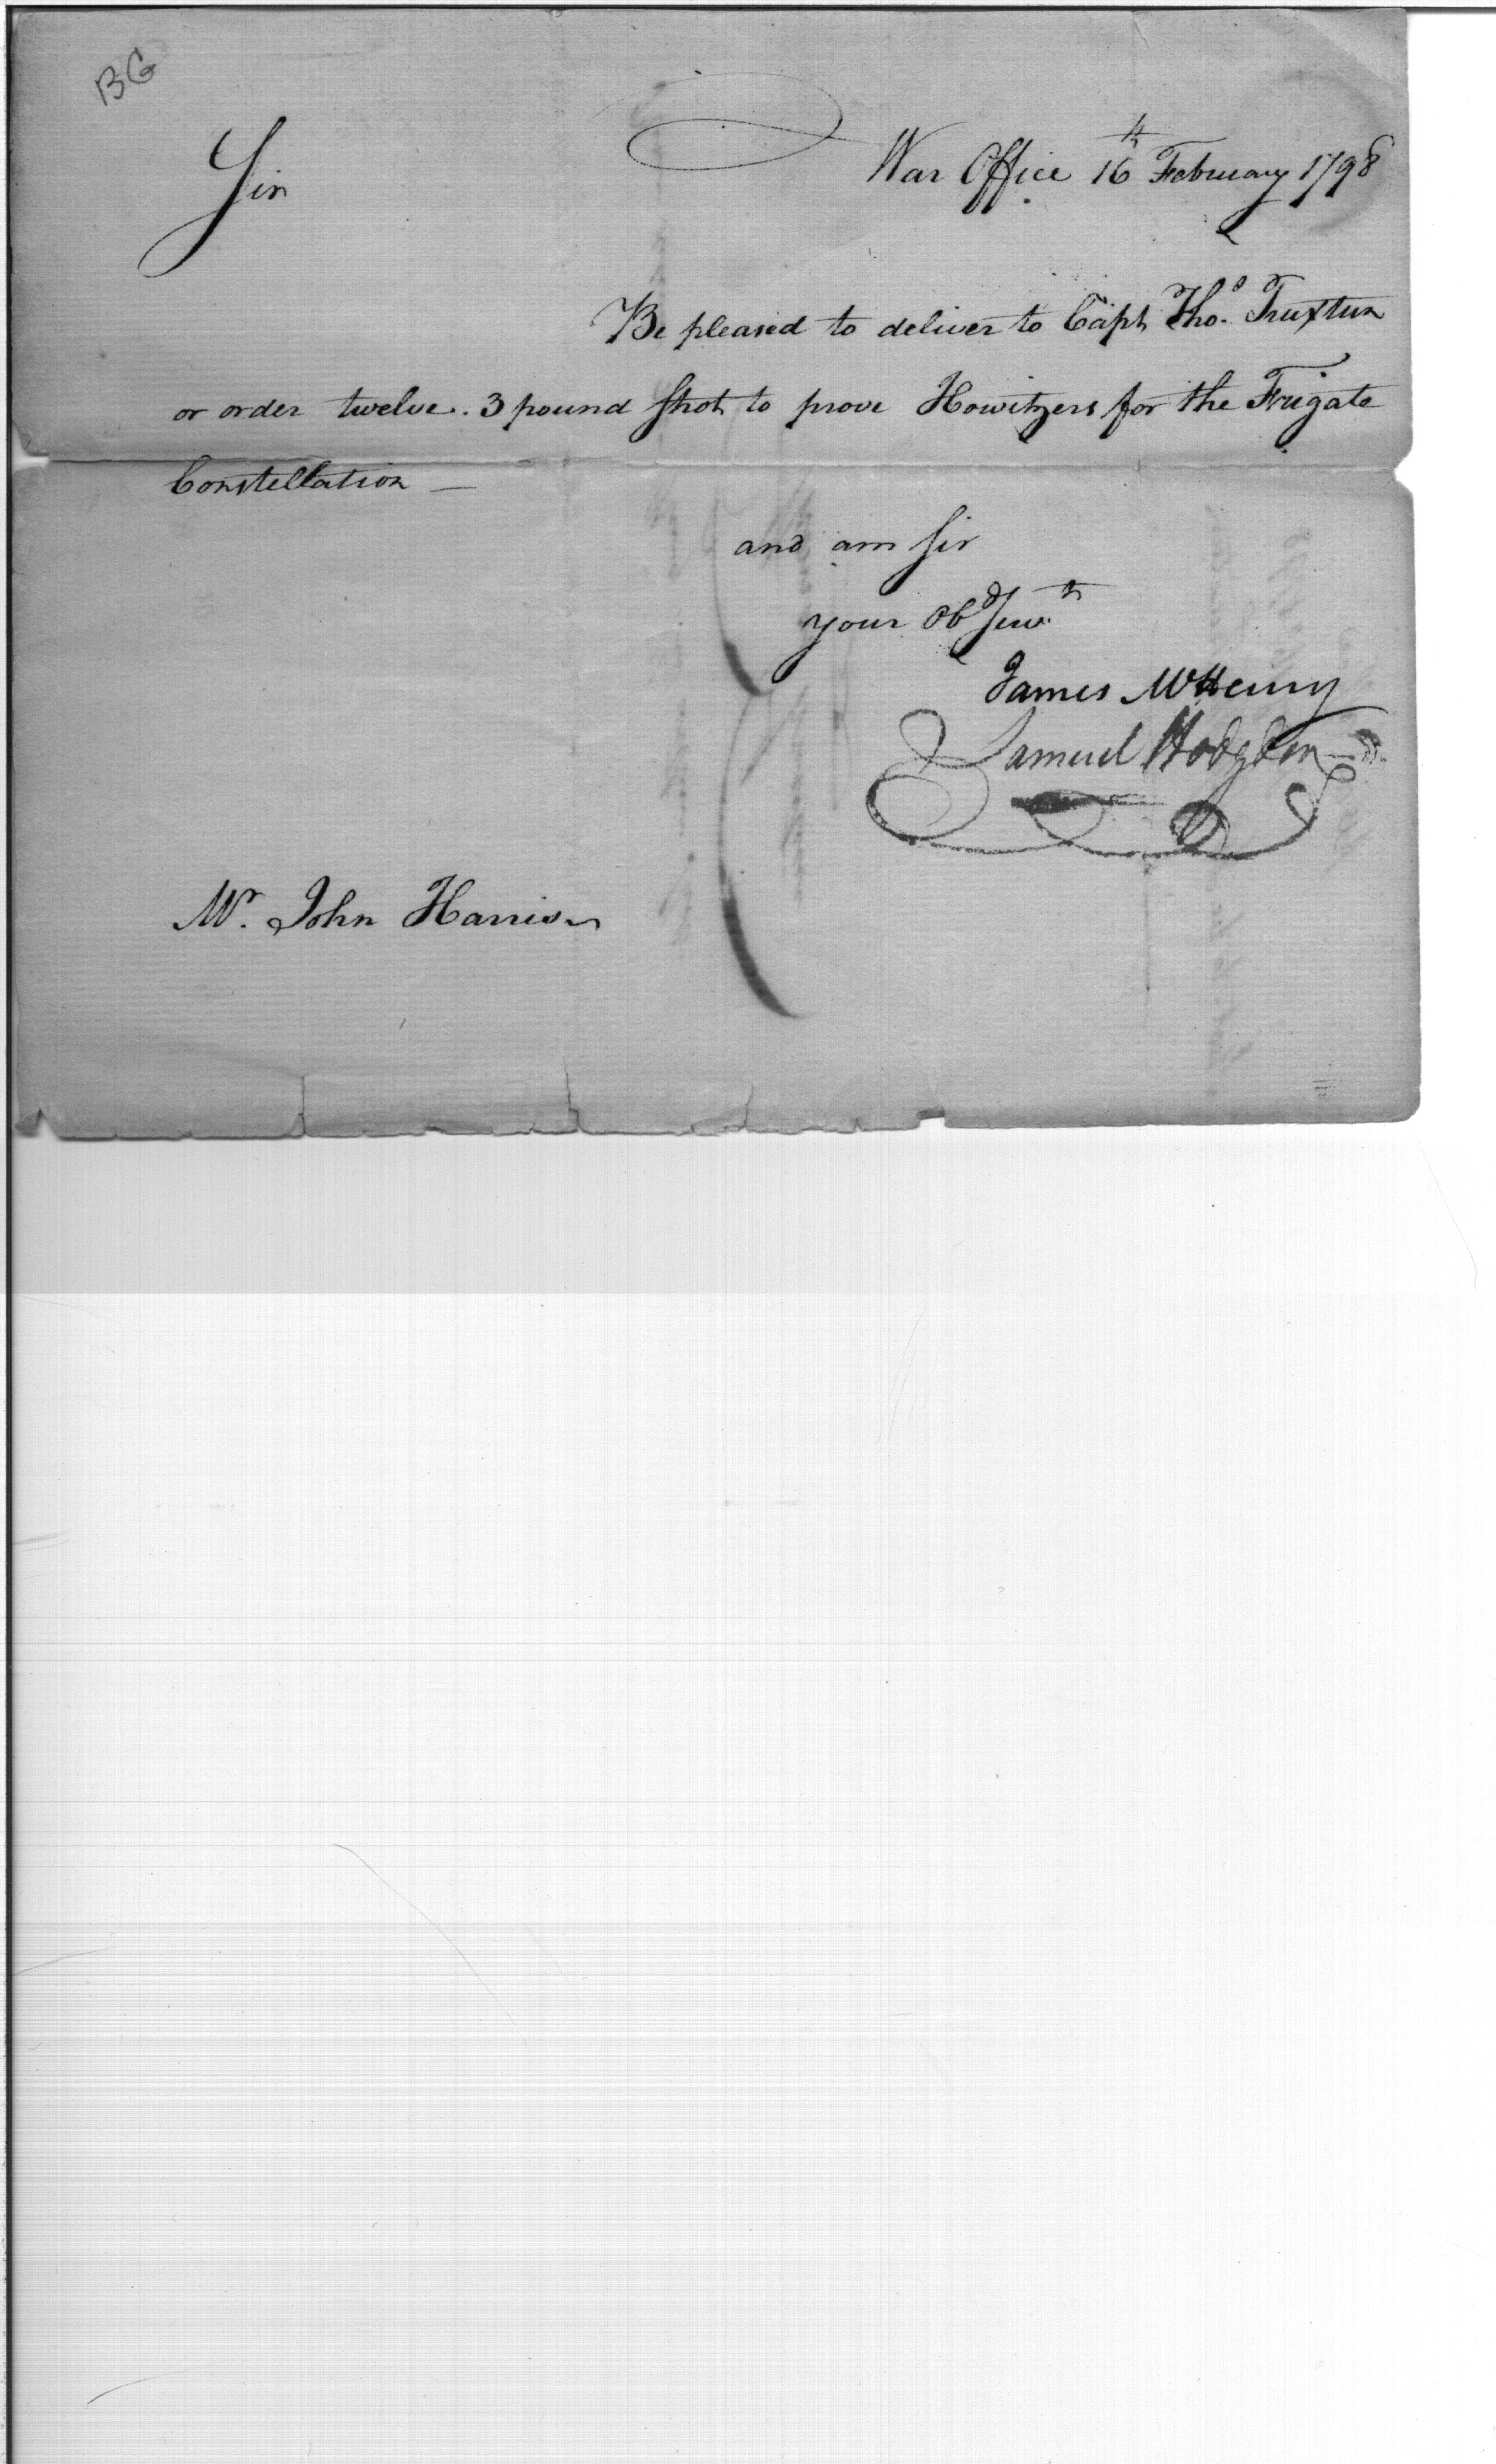 BG
War Office 16th February 1798
Sir
Be pleased to deliver to Capt Thos. Truxtun
or order twelve. 3 pound shot to prove Howitzers for the Frigate
Constellation —
and am Sir
your Obd Servt
James McHenry
Samuel Hodgdon
Mr. John Harris